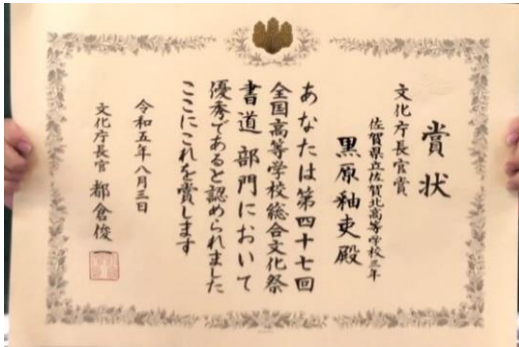 賞状
文化庁長官賞
佐賀県立佐賀北高等学校三年
黒原釉吏殿
あなたは第四十七回
全国高等学校総合文化祭
書道部門において
優秀であると認められました
ここにこれを賞します
令和五年八月三日
文化庁長官 都倉俊一